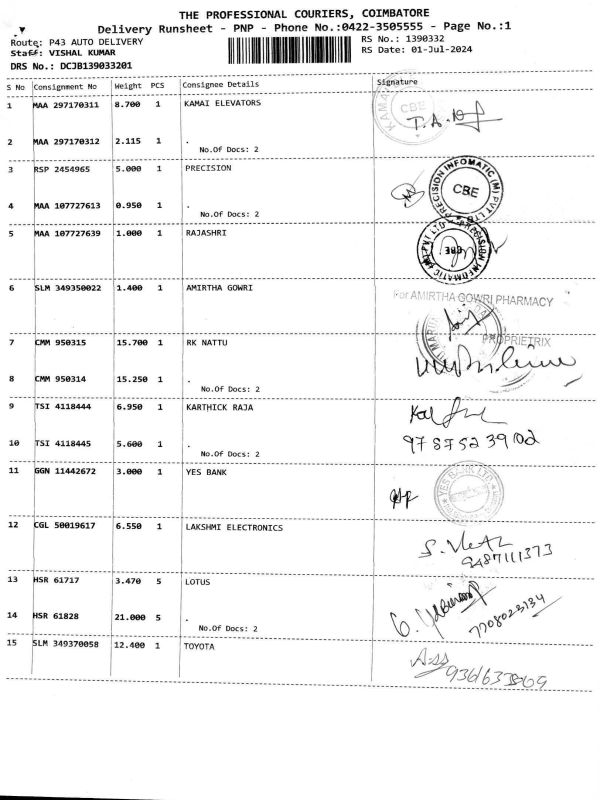 THE PROFESSIONAL COURIERS, COIMBATORE
Delivery Runsheet - PNP - Phone No.:0422-3505555 - Page No.:1
Route: P43 AUTO DELIVERY
RS No.: 1390332
Staff: VISHAL KUMAR
RS Date: 01-Jul-2024
DRS No.: DCJB139033201
S No Consignment No Weight PCS Consignee Details Signature
1 MAA 297170311 8.700 1 KAMAI ELEVATORS
CBE
T.A.
2 MAA 297170312 2.115 1 .
No.Of Docs: 2
3 RSP 2454965 5.000 1 PRECISION
PRECISION INFOMATIC (M) PVT LTD
CBE
4 MAA 107727613 0.950 1 .
No.Of Docs: 2
5 MAA 107727639 1.000 1 RAJASHRI
PRECISION INFOMATIC (M) PVT LTD
CBE
6 SLM 349350022 1.400 1 AMIRTHA GOWRI
For AMIRTHA GOWRI PHARMACY
PROPRIETRIX
7 CMM 950315 15.700 1 RK NATTU
8 CMM 950314 15.250 1 .
No.Of Docs: 2
9 TSI 4118444 6.950 1 KARTHICK RAJA
10 TSI 4118445 5.600 1 .
No.Of Docs: 2
11 GGN 11442672 3.000 1 YES BANK
YES BANK LTD
12 CGL 50019617 6.550 1 LAKSHMI ELECTRONICS
9487111373
13 HSR 61717 3.470 5 LOTUS
14 HSR 61828 21.000 5 .
7708023134
No.Of Docs: 2
15 SLM 349370058 12.400 1 TOYOTA